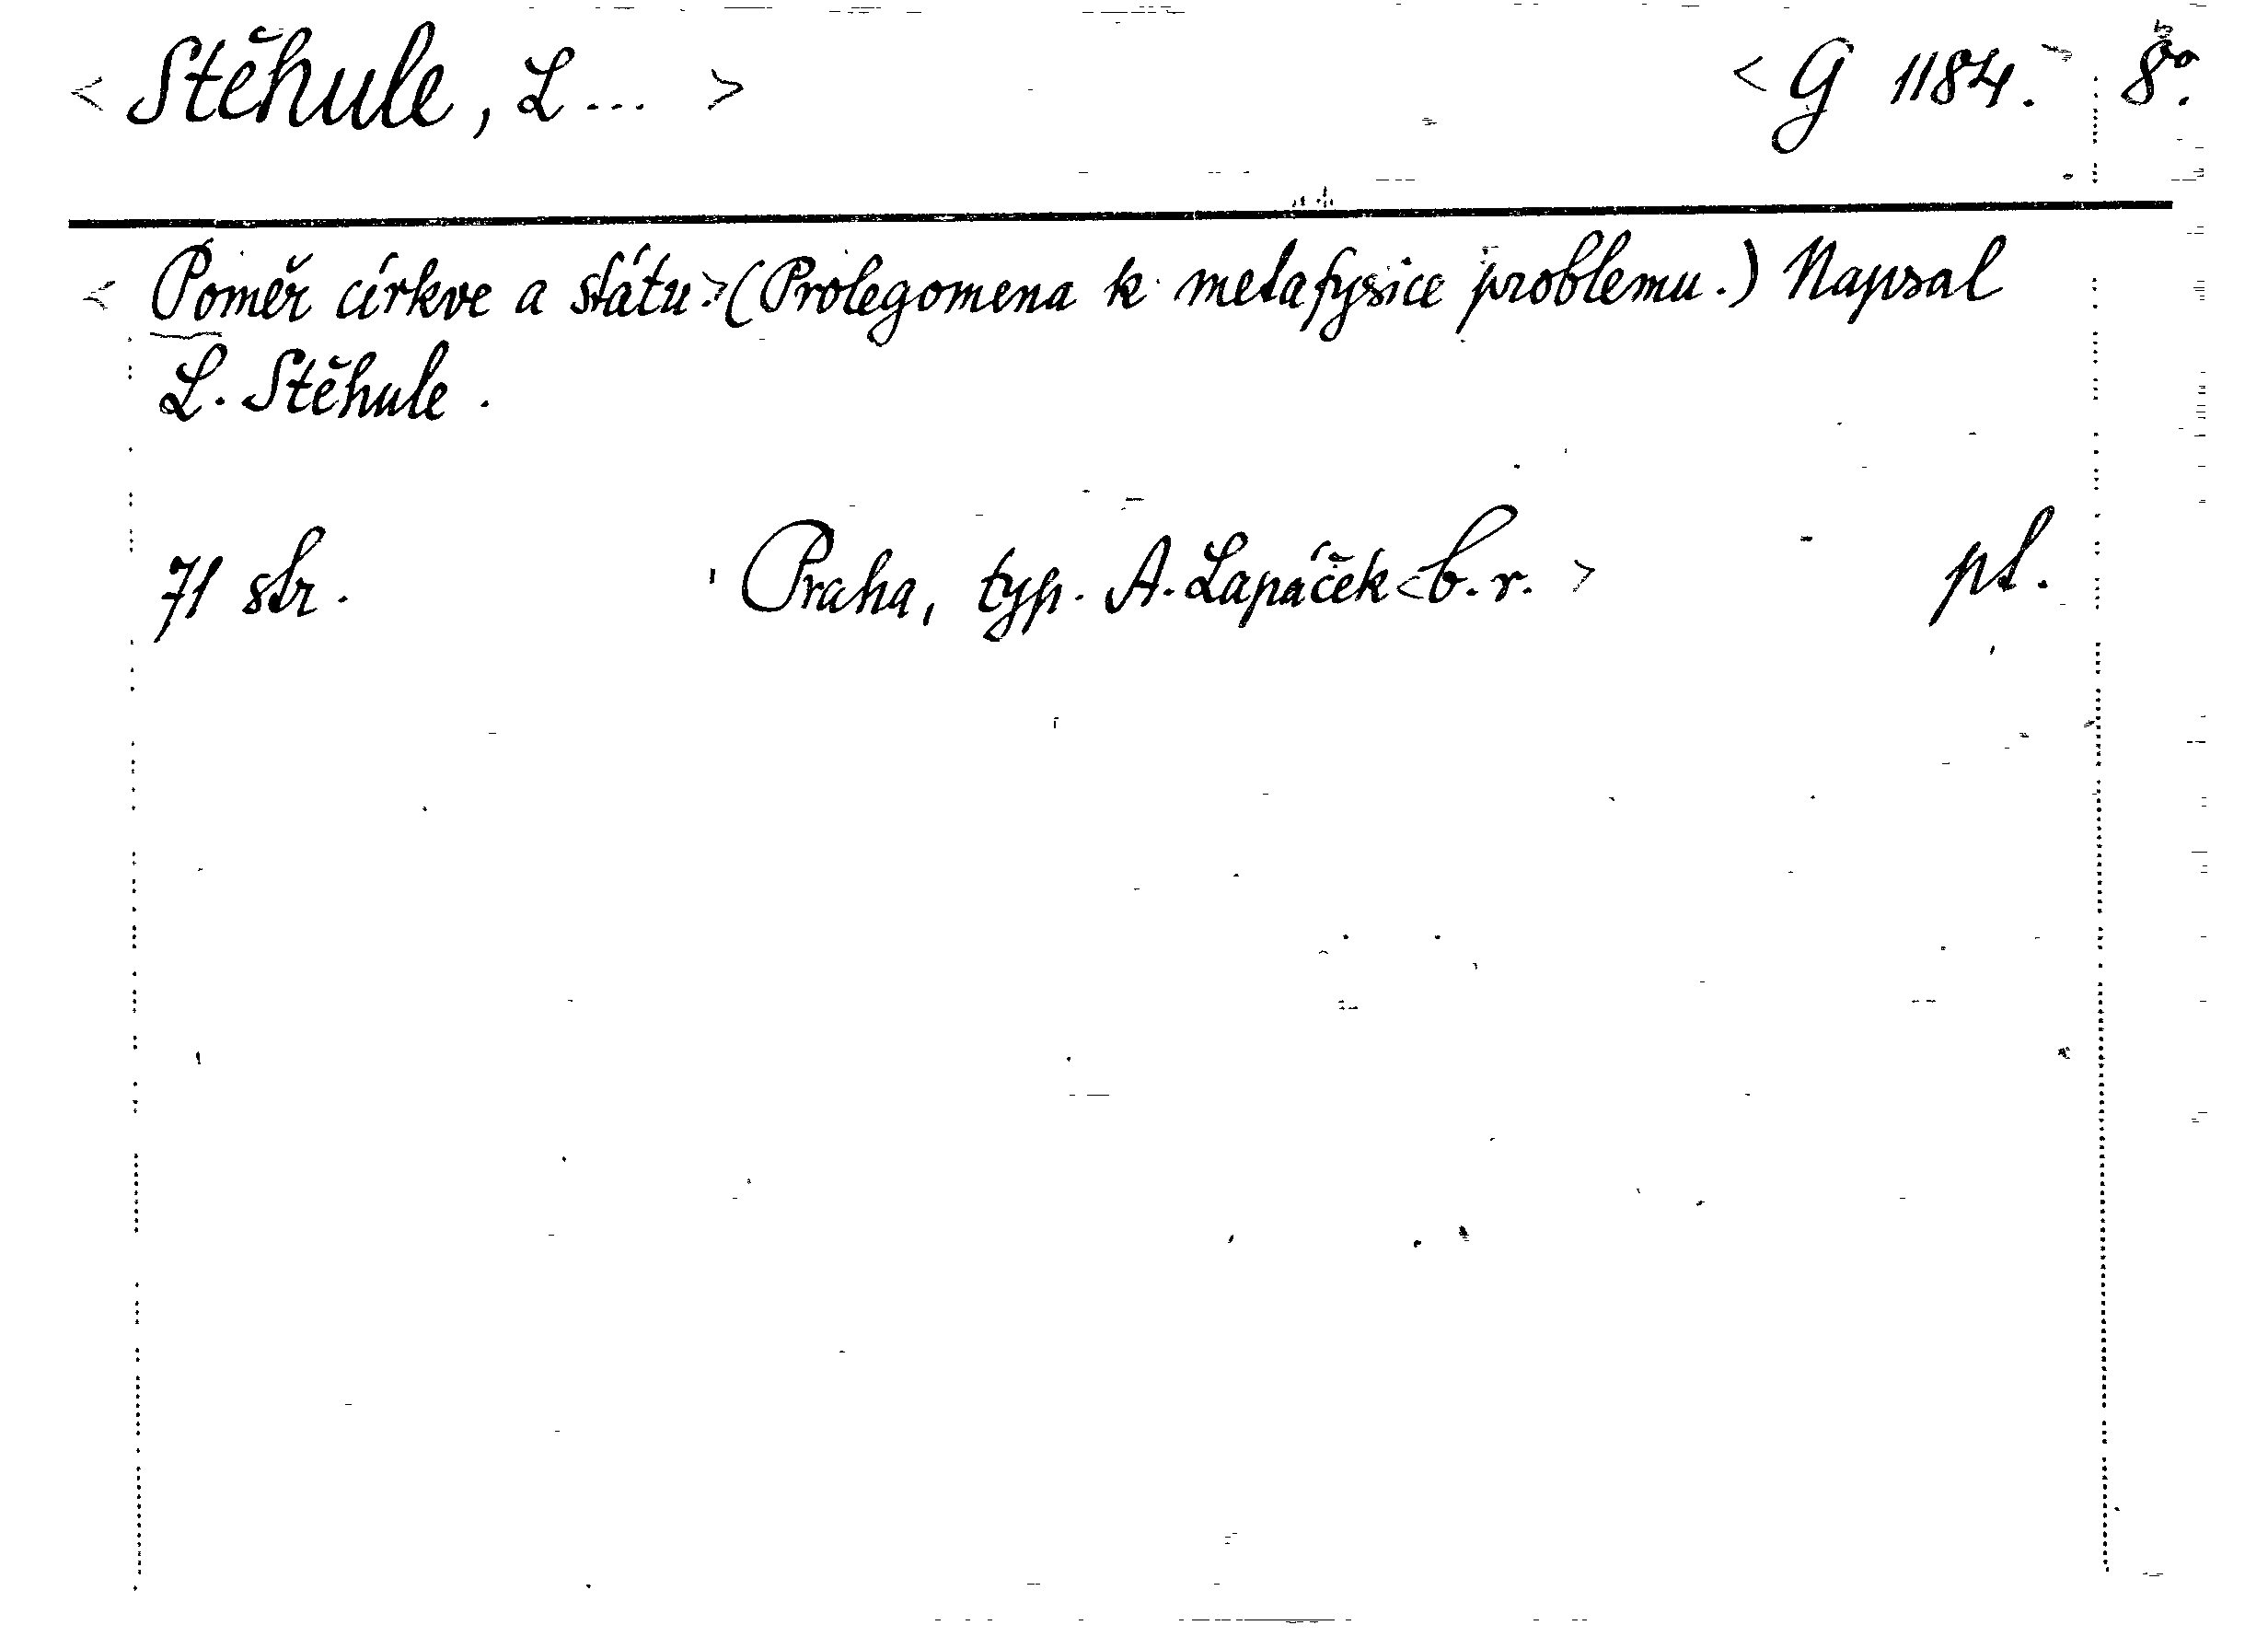 < Stěhule, L... > < G 1184. > 8°.
< Poměr církve a státu.> (Prolegomena k metafysice problemu.) Napsal
L. Stěhule.
71 str. Praha, typ. A. Lapáček <b.r.> pt.